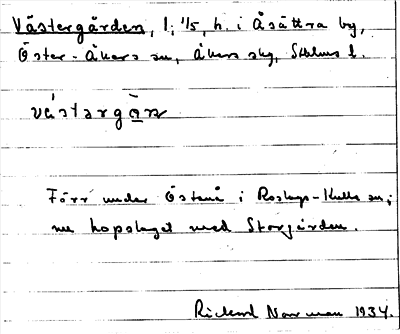 Västergården, 1; 1/5, h. i Åsättra by,
Öster-Åkers sn, Åkers skg, Sthlms l.
västargå̀ṇ
Förr under Östanå i Roslags-Kulla sn;
nu hopslaget med Storgården.
Rickard Norrman 1934.